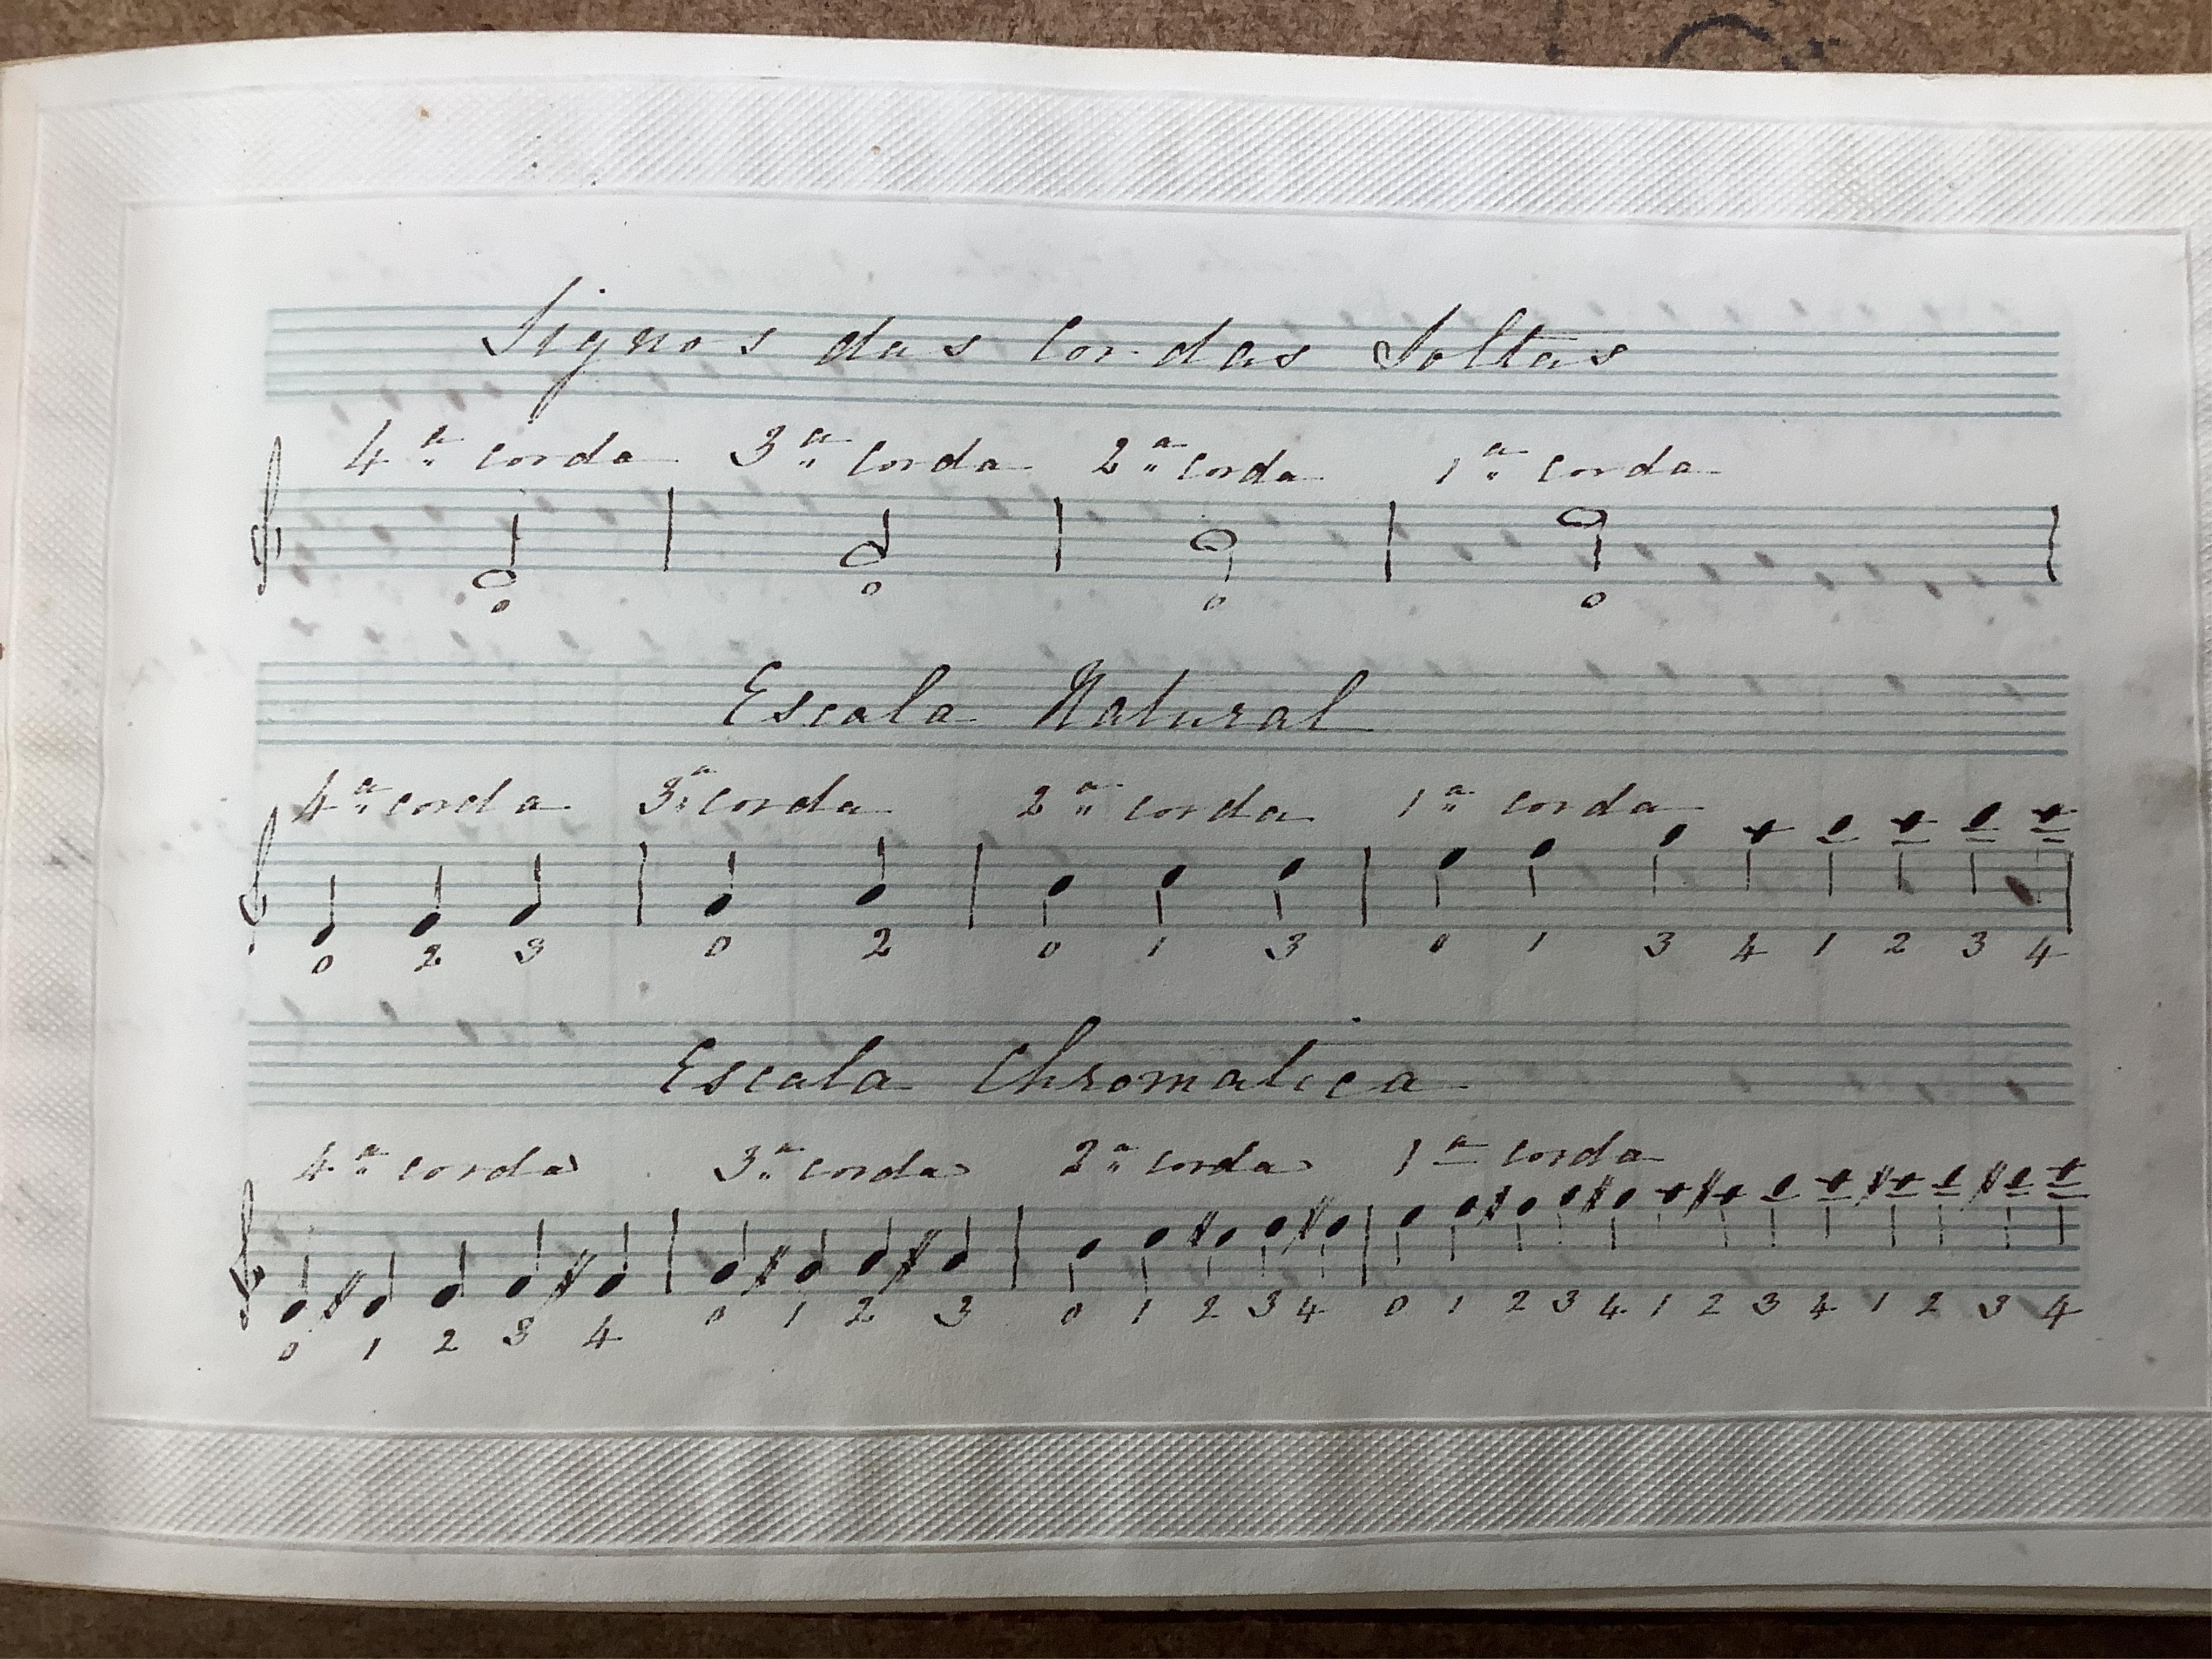 Signos das Cordas Soltas
4.ª corda 3.ª corda 2.ª corda 1.ª corda
0 0 0 0
Escala Natural
4.ª corda 3.ª corda 2.ª corda 1.ª corda
0 2 3 0 2 0 1 3 0 1 3 4 1 2 3 4
Escala Chromatica
4.ª corda 3.ª corda 2.ª corda 1.ª corda
0 1 2 3 4 0 1 2 3 0 1 2 3 4 0 1 2 3 4 1 2 3 4 1 2 3 4